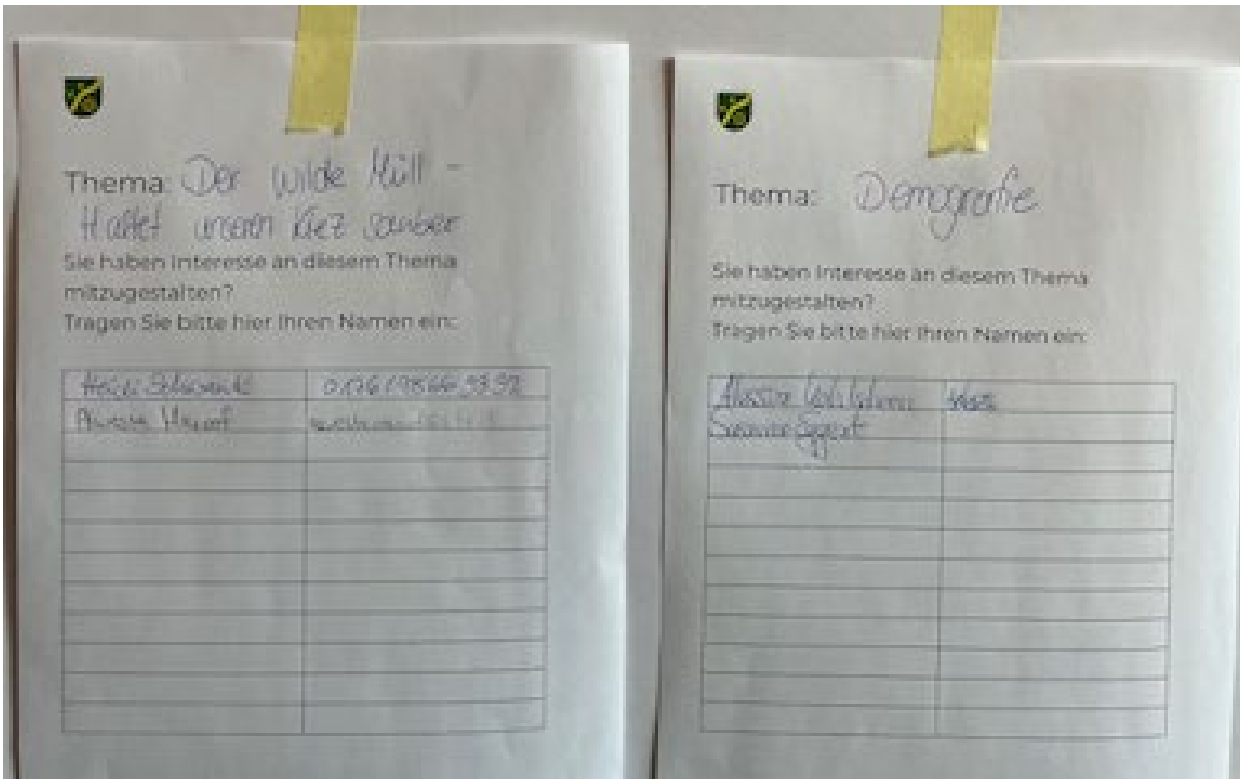 Thema: Der wilde Müll -
Haltet unseren Kiez sauber
Sie haben Interesse an diesem Thema
mitzugestalten?
Tragen Sie bitte hier Ihren Namen ein:
Thema: Demografie
Sie haben Interesse an diesem Thema
mitzugestalten?
Tragen Sie bitte hier Ihren Namen ein:
Susanne Eggert